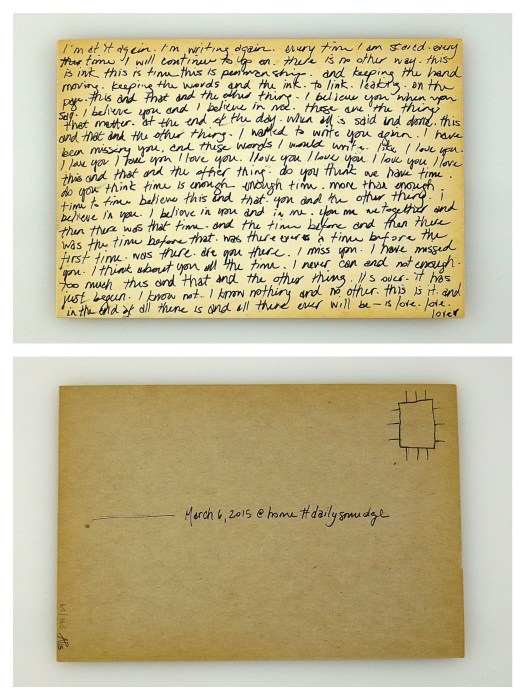 I'm at it again. I'm writing again. every time I am scared. every
time I will continue to go on. there is no other way. this
is ink this is time this is penmanship. and keeping the hand
moving. keeping the words and the ink. to link. leaking. on the
page. this and that and the other thing. I believe you when you
say. I believe you and I believe in me. those are the things
that matter. at the end of the day. when all is said and done. this
and that and the other thing. I wanted to write you again. I have
been missing you. and these words I would write. like I love you.
I love you I love you I love you. I love you I love you. I love you I love
this and that and the other thing. do you think we have time.
do you think time is enough. enough time. more than enough.
time to time believe this and that. you and the other thing. I
believe in you. I believe in you and in me. you me we together and
then there was that time. and the time before and then there
was the time before that. was there ever a time before the
first time. was there. are you there. I miss you. I have missed
you. I think about you all the time. I never can and not enough.
too much this and that and the other thing. it's over. it has
just begun. I know not. I know nothing and no other. this is it. and
in the end of all there is and all there ever will be — is love. love.
lover
March 6, 2015 @ home #dailysmudge
65/365